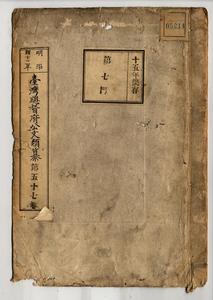 明治
三十二年
臺灣總督府公文類纂 第五十七卷
十五年保存
第七門